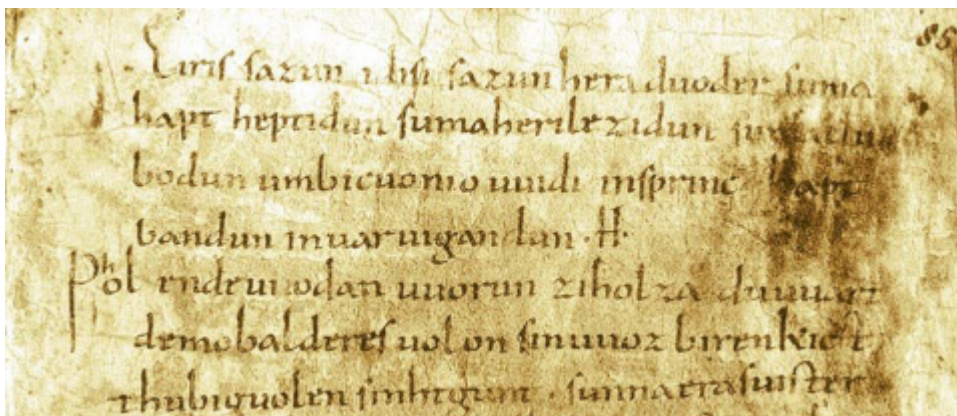 85
Eiris sazun idisi sazun hera duoder suma
hapt heptidun sumaherilezidun sumaclu
bodun umbicuonio uuidi insprinc hapt
bandun inuar uigandun · H ·
Phol endeuuodan uuorun ziholza du uuart
demobalderes uolon sinuuoz birenkict
thubiguolen sinhtgunt · sunnaerasuister